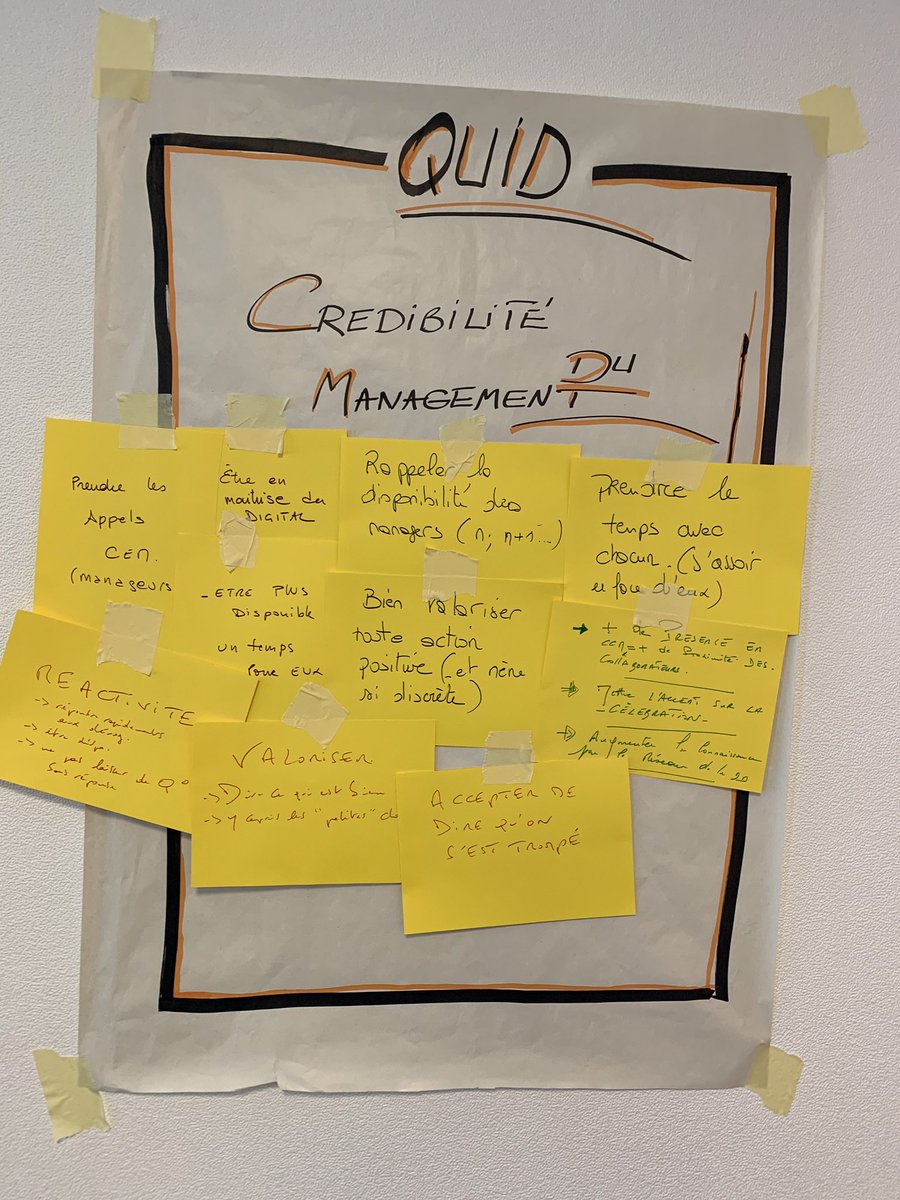 QUID
CREDIBILITÉ
DU
MANAGEMENT
Prendre les
Appels
(manageurs
Être en
maîtrise du
DIGITAL
Rappeler la
disponibilité des
managers (n; n+1...)
Prendre le
temps avec
chacun. (s'assoir
en face d'eux)
- ETRE PLUS
Disponible
un temps
POUR EUX
Bien valoriser
toute action
positive (et même
si discrète)
→ + DE PRESENCE EN
= + de Proximité DES
CollABORATEURS.
L'ACCENT SUR LA
CÉLÉBRATION-
→ Augmenter la Connaissance
par le Réseau de la
REACTIVITE
→ répondre rapidement
aux
→ être dispo.
→ ne pas laisser de Q°
sans réponse
VALORISER
→ Dire ce qui est bien
→ Y compris les "petites"
ACCEPTER DE
DIRE QU'ON
S'EST TROMPÉ